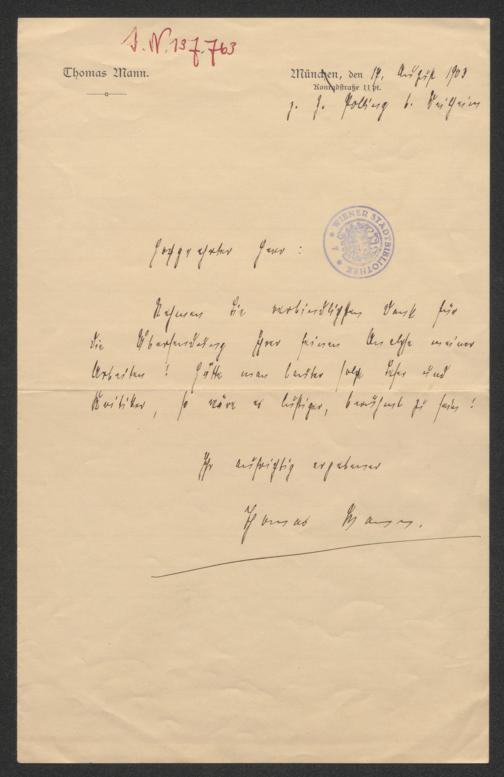 I. N. 137.763
Thomas Mann.
München, den 17. August 1903
Konradstraße 11 pt.
z. Z. Polling b. Weilheim
WIENER STADTBIBLIOTHEK
Hochgeehrter Herr:
Nehmen Sie verbindlichsten Dank für
die Übersendung Ihrer feinen Analyse meiner
Arbeiten! Hätte man lauter solche Leser und
Kritiker, so wäre es lustiger, berühmt zu sein!
Ihr aufrichtig ergebener
Thomas Mann.